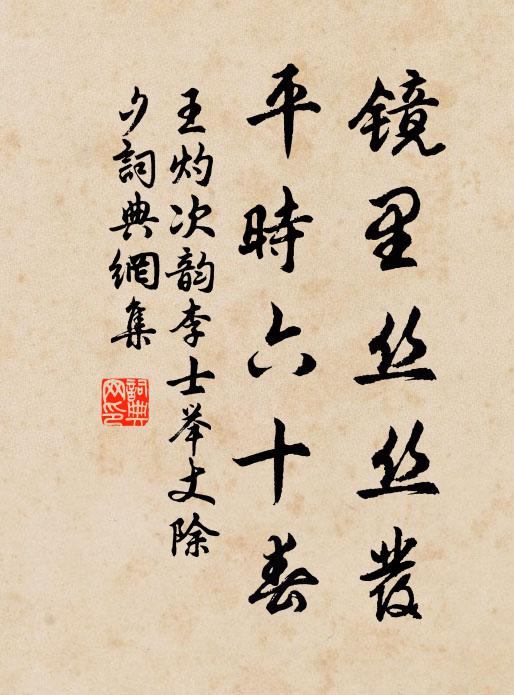 镜里丝丝發
平時六十春
王灼次韵李士举丈除
夕詞典網集
詞典
网印